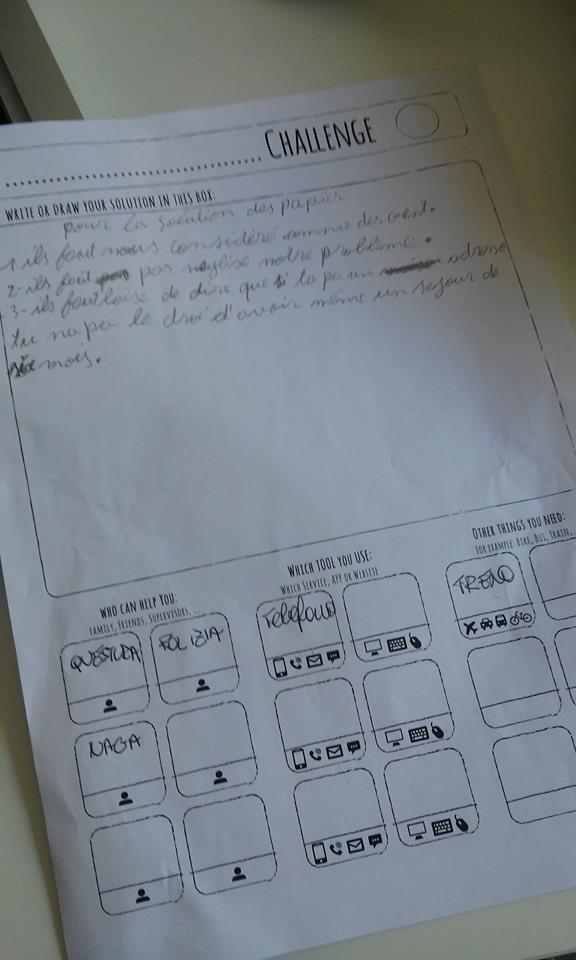 CHALLENGE
WRITE OR DRAW YOUR SOLUTION IN THIS BOX:
pour la solution des papier
1. ils faut nous considéré comme des
2- ils faut pas neglise notre problème.
3- ils faut de dire que si ta pa un adresse
tu na pa le droi d'avoir même un sejour de
mois.
WHO CAN HELP YOU:
FAMILY, FRIENDS, SUPERVISORS, ...
QUESTURA
POLIZIA
NAGA
WHICH TOOL YOU USE:
WHICH SERVICE, APP OR WEBSITE
Telefono
OTHER THINGS YOU NEED:
FOR EXAMPLE: BIKE, BUS, TRAIN,
TRENO